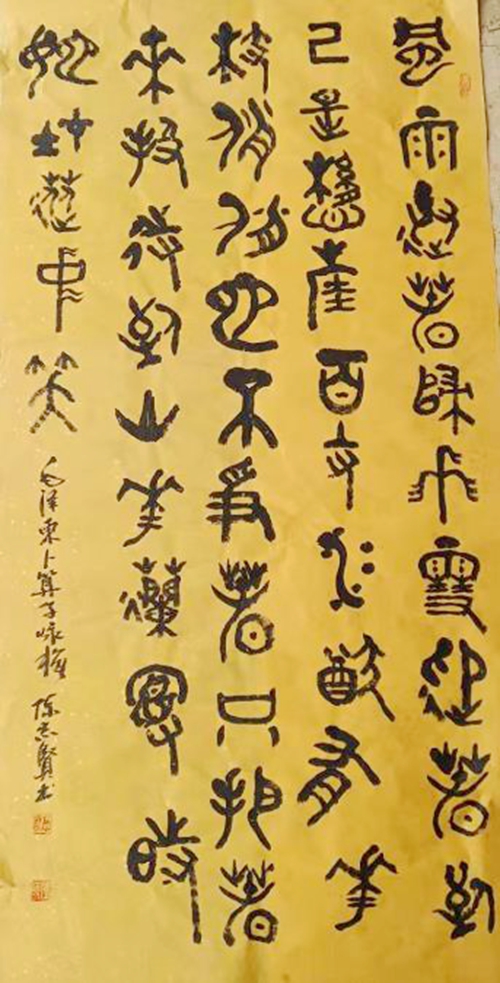 風雨送春歸飛雪迎春到
已是懸崖百丈冰猶有花
枝俏俏也不爭春只把春
来報待到山花爛漫時
她在叢中笑
毛泽東卜算子咏梅 陈志賢书